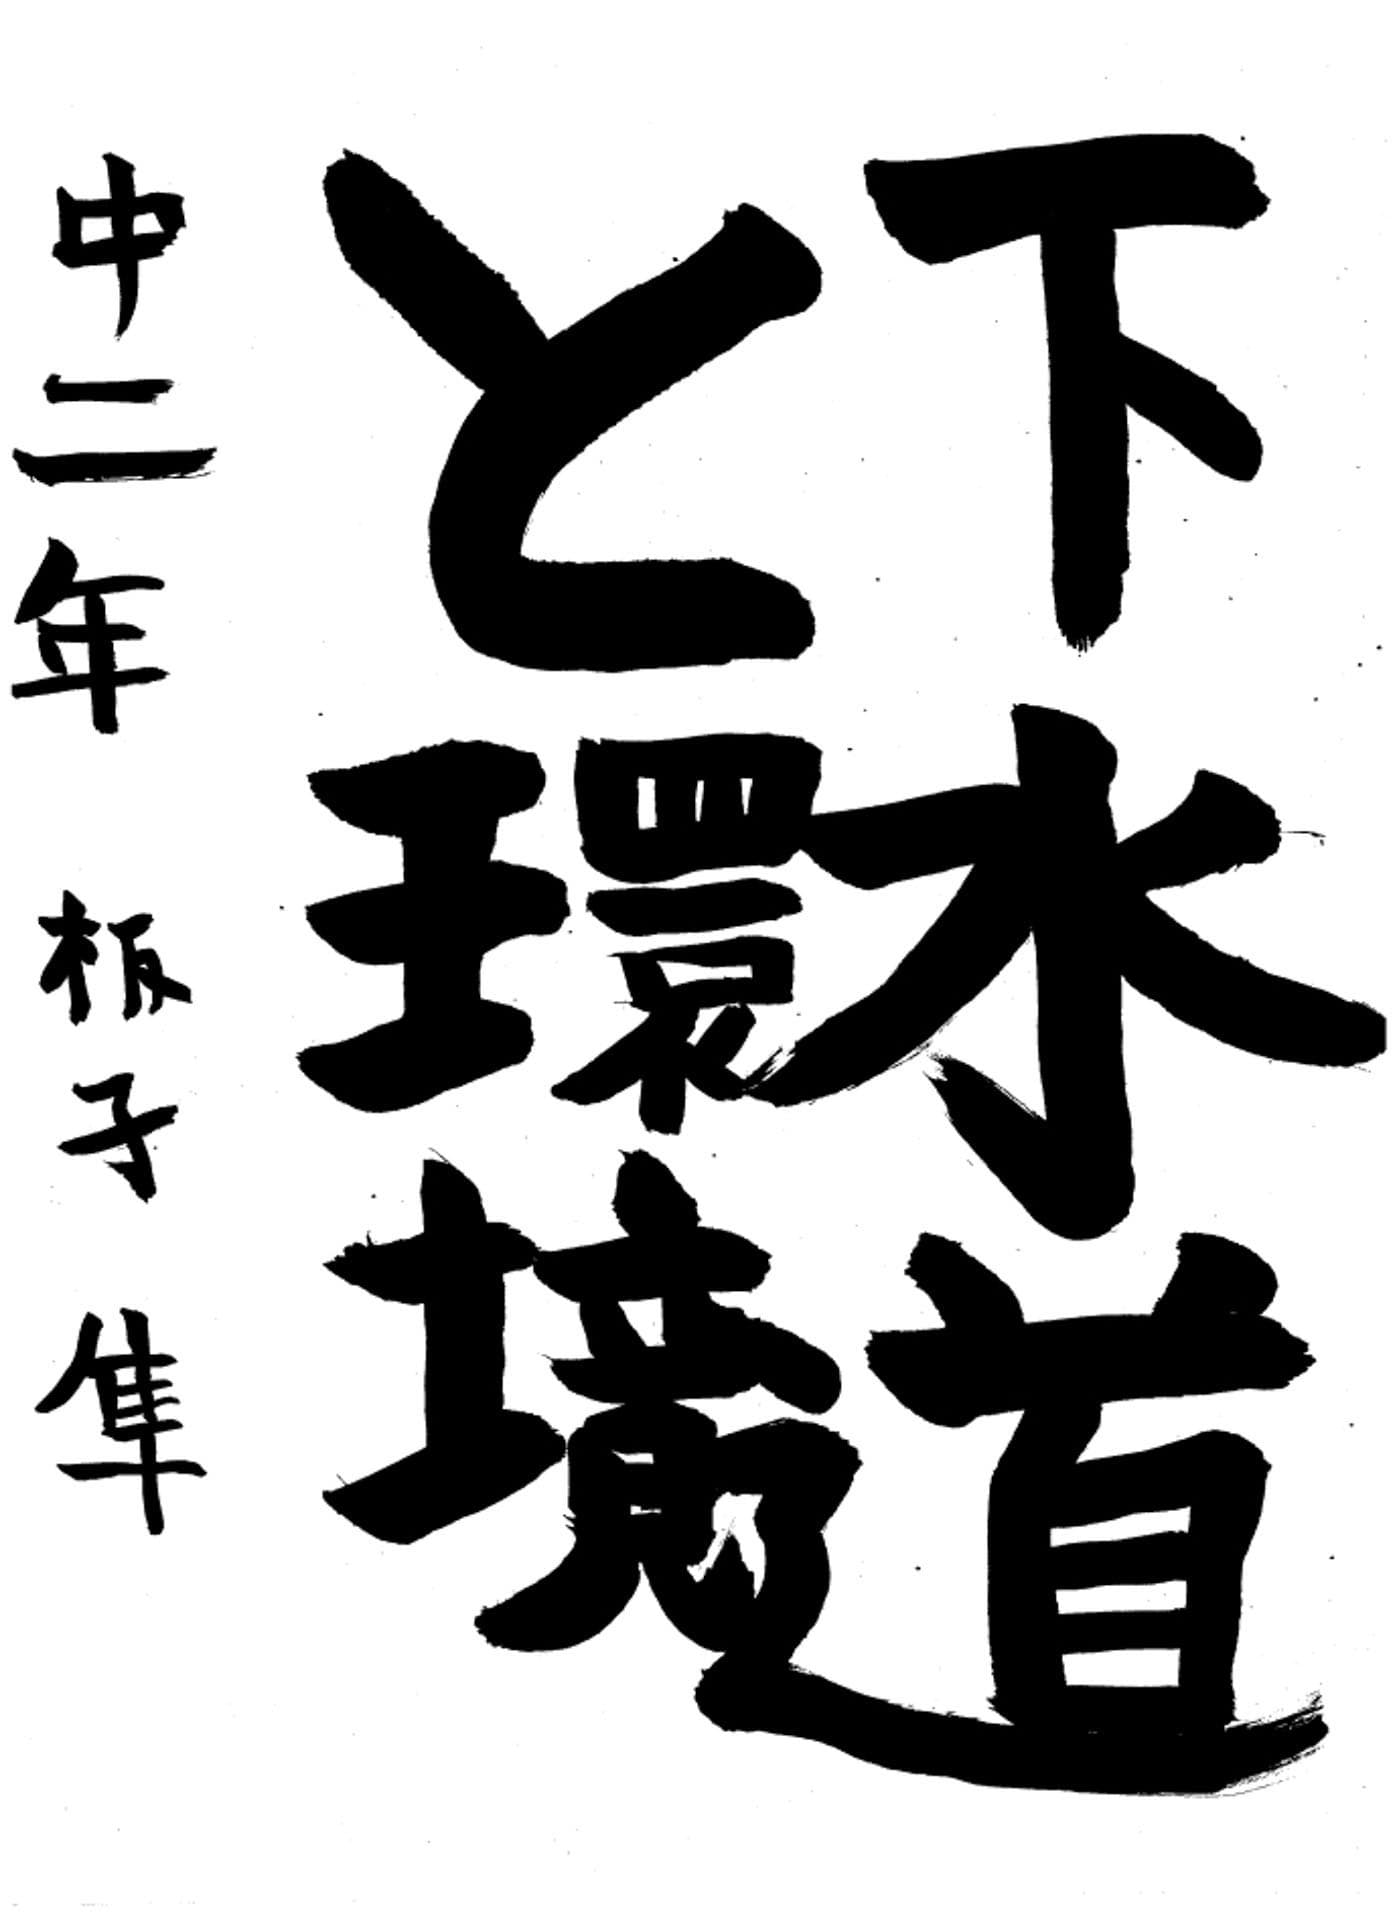 下水道
と環境
中二年 板子 隼